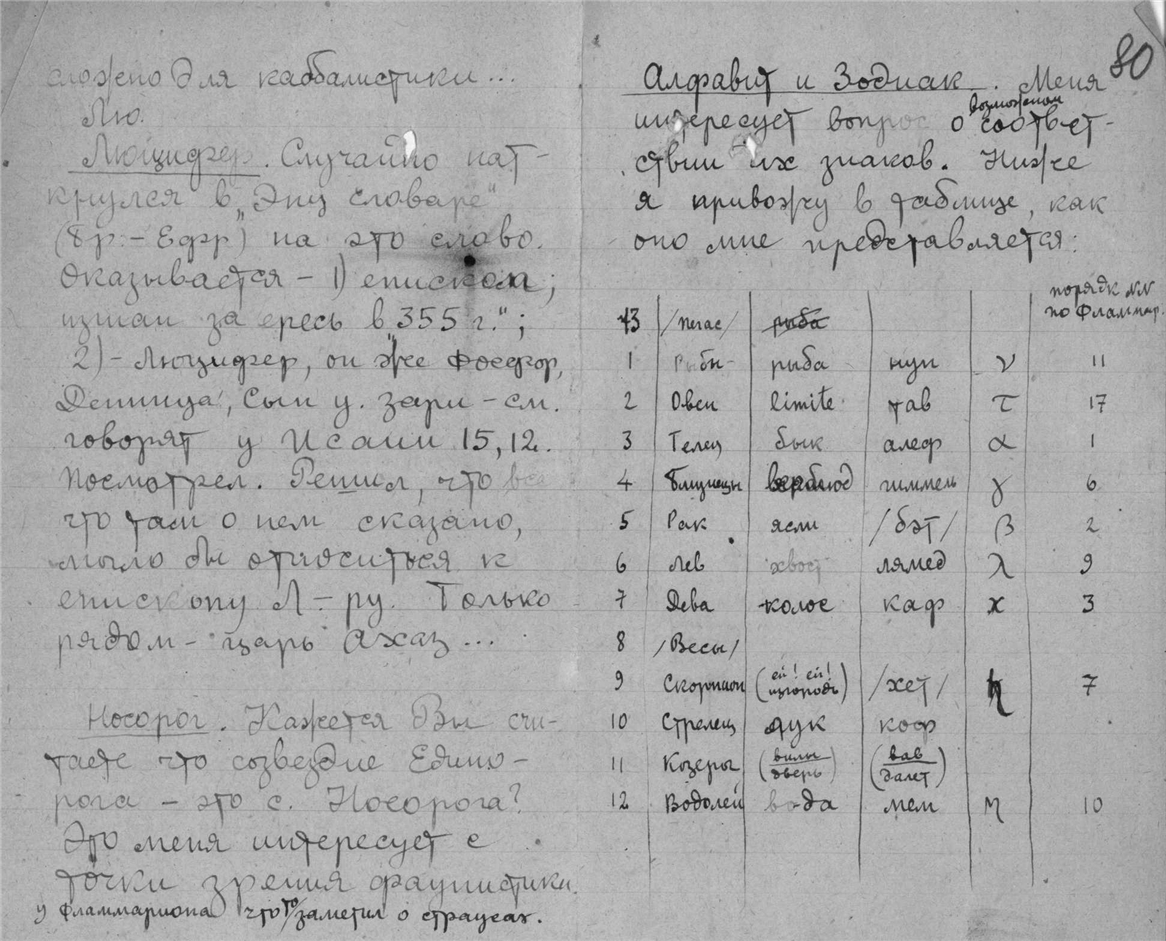 сложно для каббалистики...
Лю.
Люцифер. Случайно нат-
кнулся в „Энц словаре"
(Бр.-Ефр) на это слово.
Оказывается - 1) епископ;
изгнан за ересь в 355 г.";
2) - Люцифер, он же Фосфор,
Денница, Сын у. зари - см.
говорят у Исаии 15,12.
Посмотрел. Решил, что все
что там о нем сказано,
могло бы относиться к
епископу Л-ру. Только
рядом - царь Ахаз...
Носорог. Кажется Вы счи-
таете что созвездие Едино-
рога - это с. Носорога?
Это меня интересует с
точки зрения фаунистики.
у Фламмариона что то заметил о страусах.
80
Алфавит и Зодиак. Меня
интересует вопрос о возможном соответ-
ствии их знаков. Ниже
я привожу в таблице, как
оно мне представляется:
порядк NN по Фламмар.
13 /пегас/ рыба
1 Рыбы рыба нун ν 11
2 Овен limite тав τ 17
3 Телец бык алеф α 1
4 Близнецы верблюд гиммель γ 6
5 Рак ясли /бэт/ β 2
6 Лев хвост лямед λ 9
7 Дева колос каф ϰ 3
8 /Весы/
9 Скорпион (ей! ей! изгородь) /хет/ 7
10 Стрелец лук коф
11 Козерог (вилы дверь) (вав далет)
12 Водолей вода мем 10